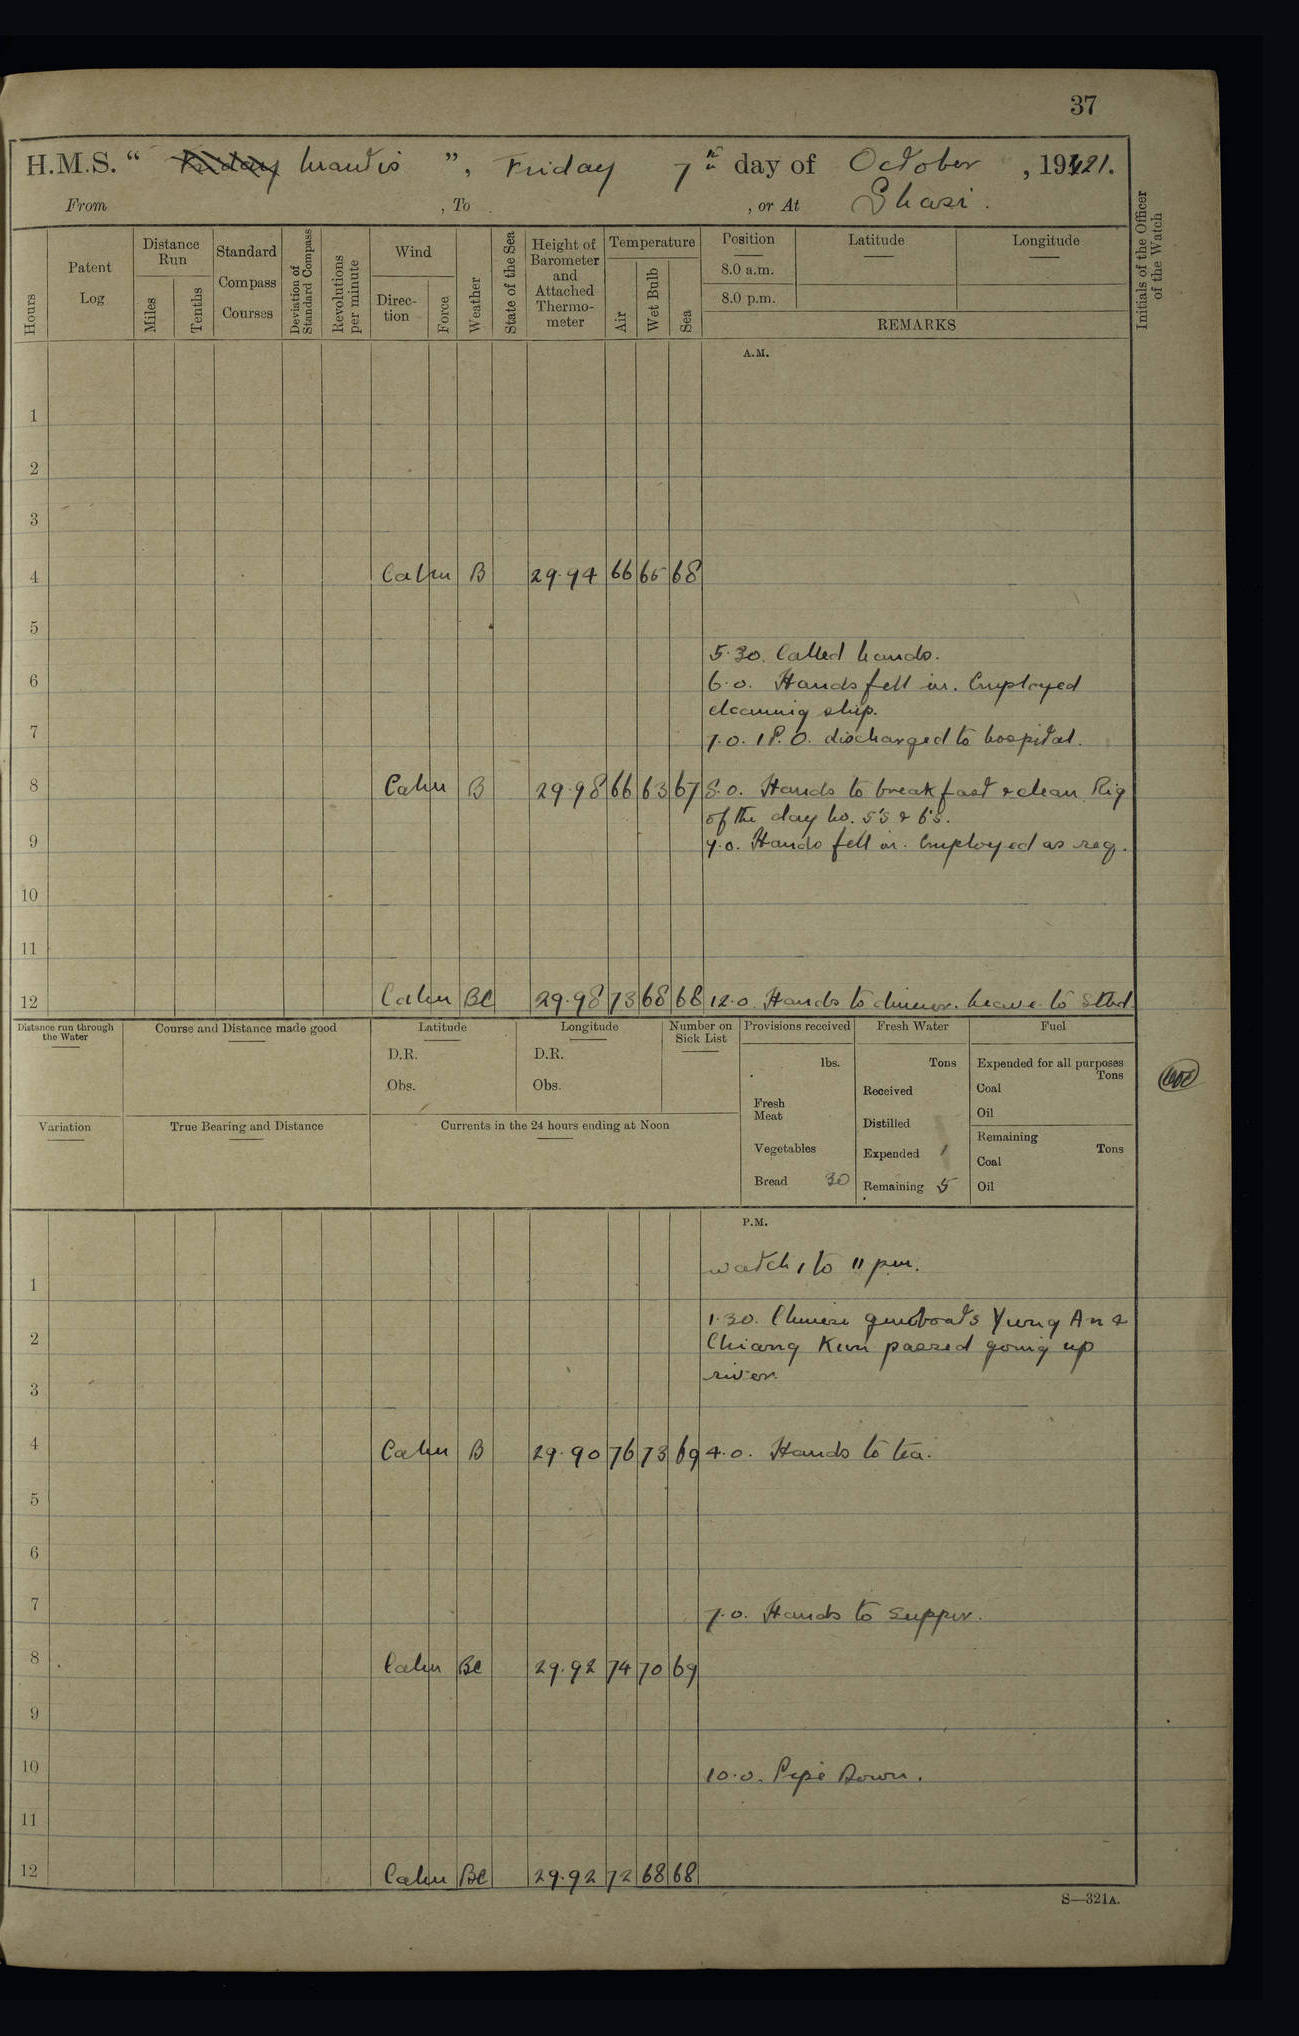 37
H.M.S. “ Friday Mantis ”, Friday 7th day of October , 1921.
From , To , or At Shasi.
Hours
Patent Log
Distance Run
Miles
Tenths
Standard Compass Courses
Deviation of Standard Compass
Revolutions per minute
Wind
Direc-tion
Force
Weather
State of the Sea
Height of Barometer and Attached Thermo-meter
Temperature
Air
Wet Bulb
Sea
Position
8.0 a.m.
8.0 p.m.
Latitude
Longitude
REMARKS
Initials of the Officer of the Watch
A.M.
1
2
3
4 Calm B 29.94 66 65 68
5
5.30. Called hands.
6 6.0. Hands fell in. Employed
cleaning ship.
7 7.0. 1 P.O. discharged to hospital.
8 Calm B 29.98 66 63 67 8.0. Hands to breakfast & clean. Rig
of the day No. 5's & 6's.
9 9.0. Hands fell in. Employed as req.
10
11
12 Calm BC 29.98 73 68 68 12.0. Hands to dinner. Leave to Stbd
Distance run through the Water
Course and Distance made good
Latitude
D.R.
Obs.
Longitude
D.R.
Obs.
Number on Sick List
Provisions received
lbs.
Fresh Meat
Vegetables
Bread 30
Fresh Water
Tons
Received
Distilled
Expended 1
Remaining 5
Fuel
Expended for all purposes
Tons
Coal
Oil
Remaining
Tons
Coal
Oil
Variation
True Bearing and Distance
Currents in the 24 hours ending at Noon
P.M.
watch 1 to 11 pm.
1
1.30. Chinese gunboats Yung An &
2 Chiang Kun passed going up
river.
3
4 Calm B 29.90 76 73 69 4.0. Hands to tea.
5
6
7 7.0. Hands to supper.
8 Calm BC 29.92 74 70 69
9
10 10.0. Pipe Down.
11
12 Calm BC 29.92 72 68 68
S—321A.